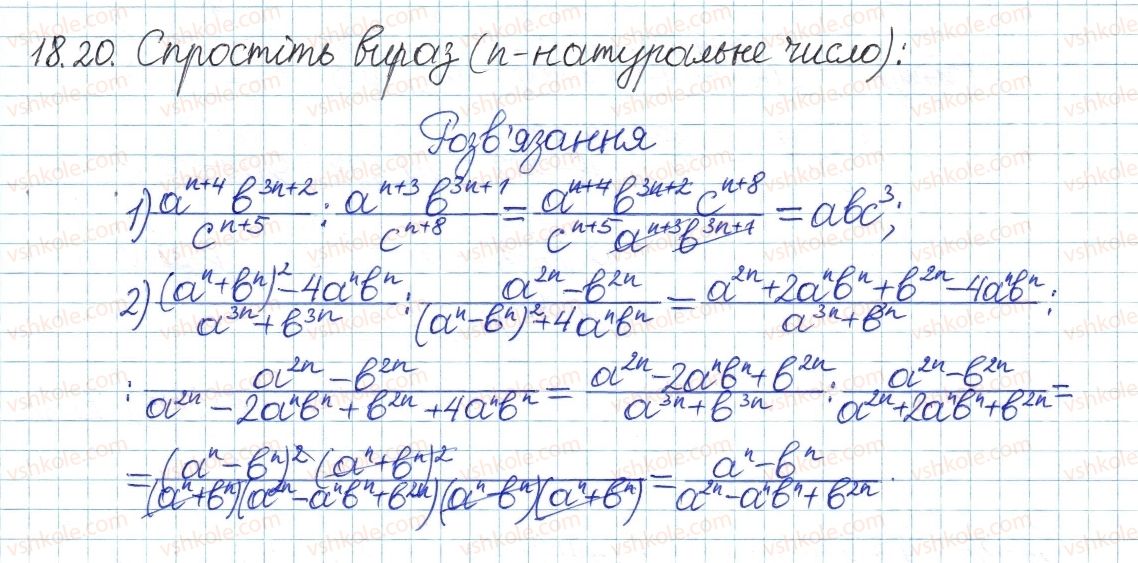 18.20. Спростіть вираз (n-натуральне число):
Розв'язання
1) a^{n+4} b^{3n+2} / c^{n+5} : a^{n+3} b^{3n+1} / c^{n+8} = a^{n+4} b^{3n+2} c^{n+8} / c^{n+5} a^{n+3} b^{3n+1} = abc^3;
2) (a^n+b^n)^2-4a^n b^n / a^{3n}+b^{3n} : a^{2n}-b^{2n} / (a^n-b^n)^2+4a^n b^n = a^{2n}+2a^n b^n+b^{2n}-4a^n b^n / a^{3n}+b^{3n} :
: a^{2n}-b^{2n} / a^{2n}-2a^n b^n+b^{2n}+4a^n b^n = a^{2n}-2a^n b^n+b^{2n} / a^{3n}+b^{3n} : a^{2n}-b^{2n} / a^{2n}+2a^n b^n+b^{2n} =
= (a^n-b^n)^2 (a^n+b^n)^2 / (a^n+b^n)(a^{2n}-a^n b^n+b^{2n})(a^n-b^n)(a^n+b^n) = a^n-b^n / a^{2n}-a^n b^n+b^{2n}.